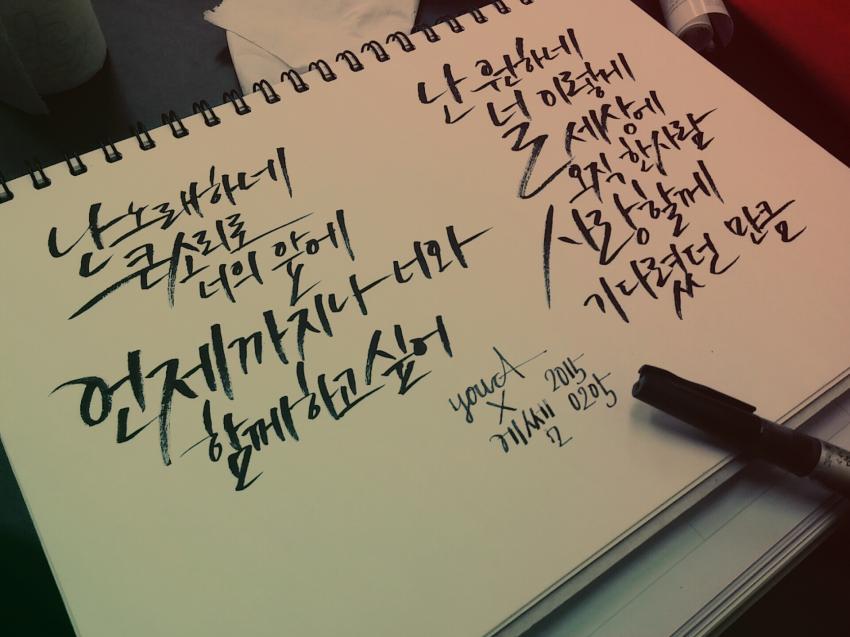 난 노래하네
큰소리로
너의 앞에
언제까지나 너와
함께하고 싶어
난 원하네
널 이렇게
세상에
오직 한사람
사랑할께
기다렸던 만큼
yourA
X
2015
0205